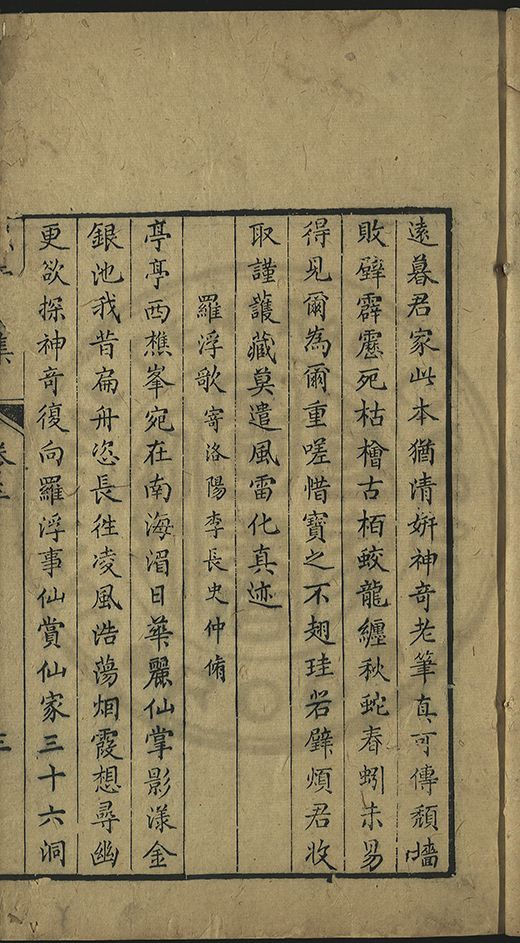 遠暮君家此本猶清妍神奇老筆真可傳頽牆
敗壁霹靂死枯檜古栢蛟龍纏秋蛇春蚓未易
得見爾為爾重嗟惜寶之不翅珪若璧煩君收
取謹護藏莫遣風雷化真迹
羅浮歌寄洛陽李長史仲脩
亭亭西樵峯宛在南海湄日華麗仙掌影漾金
銀池我昔扁舟恣長往凌風浩蕩烟霞想尋幽
更欲探神奇復向羅浮事仙賞仙家三十六洞
集
卷三
三